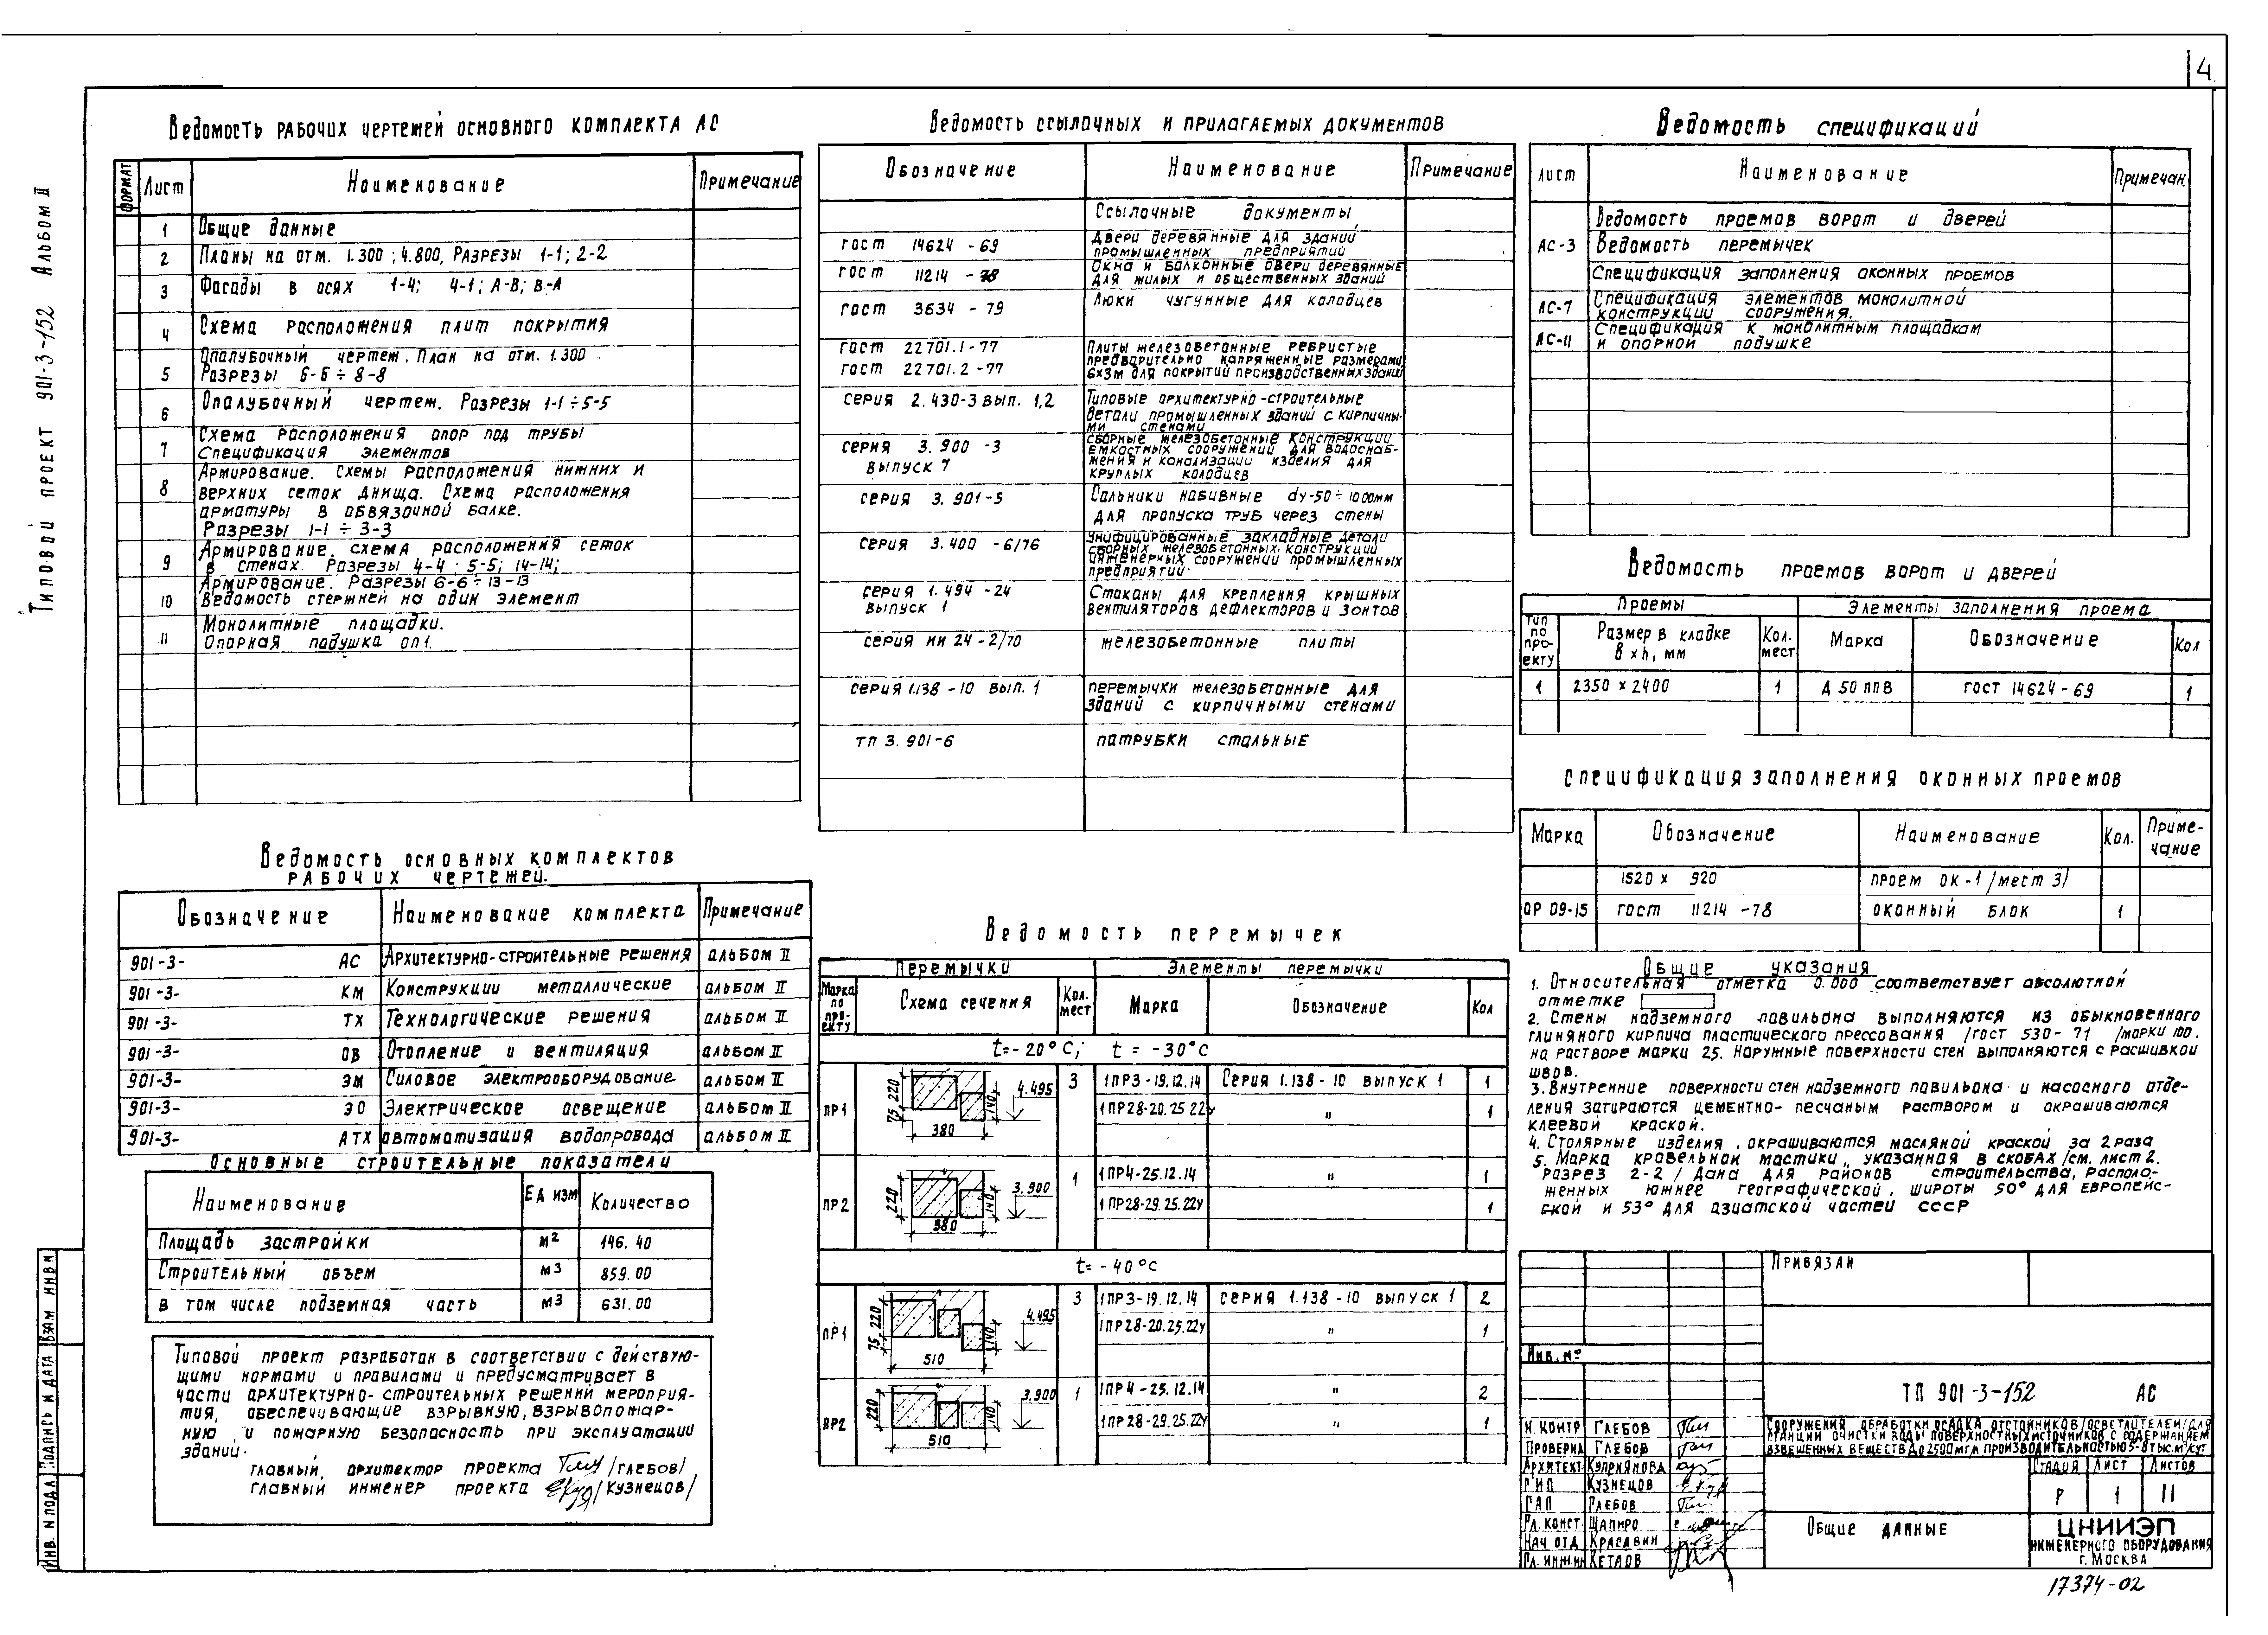 4
Типовой проект 901-3-152 Альбом II
Ведомость рабочих чертежей основного комплекта АС
Формат Лист Наименование Примечание
1 Общие данные
2 Планы на отм. 1.300; 4.800, Разрезы 1-1; 2-2
3 Фасады в осях 1-4; 4-1; А-В; В-А
4 Схема расположения плит покрытия
Опалубочный чертеж. План на отм. 1.300
5 Разрезы 6-6 ÷ 8-8
6 Опалубочный чертеж. Разрезы 1-1 ÷ 5-5
Схема расположения опор под трубы
7 Спецификация элементов
Армирование. Схемы расположения нижних и
8 верхних сеток днища. Схема расположения
арматуры в обвязочной балке.
Разрезы 1-1 ÷ 3-3
Армирование. схема расположения сеток
9 в стенах. Разрезы 4-4; 5-5; 14-14;
Армирование. Разрезы 6-6 ÷ 13-13
10 Ведомость стержней на один элемент
Монолитные площадки.
11 Опорная подушка оп1.
Ведомость основных комплектов
рабочих чертежей.
Обозначение Наименование комплекта Примечание
901-3- АС Архитектурно-строительные решения альбом II
901-3- КМ Конструкции металлические альбом II
901-3- ТХ Технологические решения альбом II
901-3- ОВ Отопление и вентиляция альбом II
901-3- ЭМ Силовое электрооборудование альбом II
901-3- ЭО Электрическое освещение альбом II
901-3- АТХ автоматизация водопровода альбом II
Основные строительные показатели
Наименование Ед изм Количество
Площадь застройки м2 146.40
Строительный объем м3 859.00
в том числе подземная часть м3 631.00
Типовой проект разработан в соответствии с действую-
щими нормами и правилами и предусматривает в
части архитектурно-строительных решений мероприя-
тия, обеспечивающие взрывную, взрывопожар-
ную и пожарную безопасность при эксплуатации
зданий.
главный архитектор проекта /Глебов/
главный инженер проекта /Кузнецов/
Ведомость ссылочных и прилагаемых документов
Обозначение Наименование Примечание
Ссылочные документы
гост 14624-69 Двери деревянные для зданий
промышленных предприятий
гост 11214-78 Окна и балконные двери деревянные
для жилых и общественных зданий
гост 3634-79 Люки чугунные для колодцев
гост 22701.1-77 Плиты железобетонные ребристые
предварительно напряженные размерами
гост 22701.2-77 6×3м для покрытий производственных зданий
серия 2.430-3 вып. 1,2 Типовые архитектурно-строительные
детали промышленных зданий с кирпичны-
ми стенами
серия 3.900-3 сборные железобетонные конструкции
емкостных сооружений для водоснаб-
выпуск 7 жения и канализации изделия для
круглых колодцев
серия 3.901-5 Сальники набивные dy-50÷1000мм
для пропуска труб через стены
серия 3.400-6/76 Унифицированные закладные детали
сборных железобетонных конструкций
инженерных сооружений промышленных
предприятий.
серия 1.494-24 Стаканы для крепления крышных
выпуск 1 вентиляторов дефлекторов и зонтов
серия ИИ 24-2/70 железобетонные плиты
серия 1.138-10 вып. 1 перемычки железобетонные для
зданий с кирпичными стенами
ТП 3.901-6 патрубки стальные
Ведомость перемычек
Перемычки Элементы перемычки
Марка по про-екту Схема сечения Кол. мест Марка Обозначение Кол
t=-20°С; t=-30°С
ПР1 75 220 140 380 4.495 3 1ПР3-19.12.14 Серия 1.138-10 выпуск 1 1
1ПР28-20.25.22у " 1
ПР2 220 140 380 3.900 1 1ПР4-25.12.14 " 1
1ПР28-29.25.22у 1
t=-40°С
ПР1 75 220 140 510 4.495 3 1ПР3-19.12.14 серия 1.138-10 выпуск 1 2
1ПР28-20.25.22у " 1
ПР2 220 140 510 3.900 1 1ПР4-25.12.14 " 2
1ПР28-29.25.22у " 1
Ведомость спецификаций
Лист Наименование Примечан.
Ведомость проемов ворот и дверей
АС-3 Ведомость перемычек
Спецификация заполнения оконных проемов
АС-7 Спецификация элементов монолитной
конструкции сооружения.
АС-11 Спецификация к монолитным площадкам
и опорной подушке
Ведомость проемов ворот и дверей
Проемы Элементы заполнения проема
Тип по про-екту Размер в кладке в×h, мм Кол. мест Марка Обозначение Кол
1 2350×2400 1 Д 50 ппв гост 14624-69 1
спецификация заполнения оконных проемов
Марка Обозначение Наименование Кол. Приме-чание
1520 × 920 проем ок-1 /мест 3/
ОР 09-15 гост 11214-78 оконный блок 1
Общие указания
1. Относительная отметка 0.000 соответствует абсолютной
отметке
2. Стены надземного павильона выполняются из обыкновенного
глиняного кирпича пластического прессования /гост 530-71 /марки 100.
на растворе марки 25. Наружные поверхности стен выполняются с расшивкой
швов.
3. Внутренние поверхности стен надземного павильона и насосного отде-
ления затираются цементно-песчаным раствором и окрашиваются
клеевой краской.
4. Столярные изделия окрашиваются масляной краской за 2 раза
5. Марка кровельной мастики, указанная в скобах /см. лист 2.
Разрез 2-2 / Дана для районов строительства, располо-
женных южнее географической широты 50° для европейс-
ской и 53° для азиатской частей СССР
Привязан
Инв. №
ТП 901-3-152 АС
Н. контр Глебов
Проверил Глебов
Архитект Куприянова
ГИП Кузнецов
ГАП Глебов
Гл. конст. Шапиро
Нач отд Красавин
Гл. инж.ин Кетаов
Сооружения обработки осадка отстойников/осветлителей/для
станции очистки воды поверхностных источников с содержанием
взвешенных веществ до 2500мг/л производительностью 5-8 тыс. м³/сут
Стадия Лист Листов
Р 1 11
Общие данные
ЦНИИЭП
инженерного оборудования
г. Москва
17374-02
Инв. N подл Подпись и дата Взам инв N